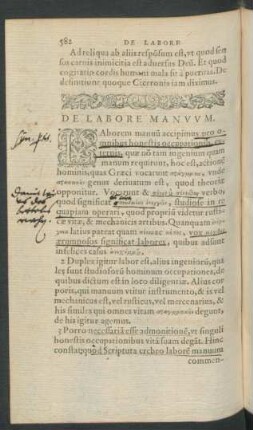 582 DE LABORE
Ad reliqua ab aliis responsum est, vt quod sen
sus carnis inimicitia est aduersus Deũ. Et quod
cogitatio cordis humani mala sit à pueritia. De
definitione quoque Ciceronis iam diximus.
DE LABORE MANVVM.
LAborem manuũ accipimus pro o-
mnibus honestis occupationib.
quæ nõ tam ingenium quam
manum requirunt, hoc est, actionẽ
hominis, quas Græci vocarunt vnde
genus deriuatum est, quod theoriæ
opponitur. Vocatur & verbo
quod significat studiose in re
quapiam operari, quod propriũ videtur rusti-
cæ vitæ, & mechanicæ artibus. Quanquam
latius patet quam vox
ærumnosos significat labores, quibus adsunt
infelices casus
2 Duplex igitur labor est, alius ingenii, qua-
les sunt studiosorũ hominum occupationes, de
quibus dictum est in loco diligentiæ. Alius cor-
poris, qui manum vtitur instrumento, & is vel
mechanicus est, vel rusticus, vel mercenarius, &
his similes qui omnes vitam degunt,
de his igitur agemus.
3 Porro necessariã esse admonitionẽ, vt singuli
honestis occupationibus vitã suam degãt. Hinc
constat, quòd Scriptura crebro labore manuum
commen-